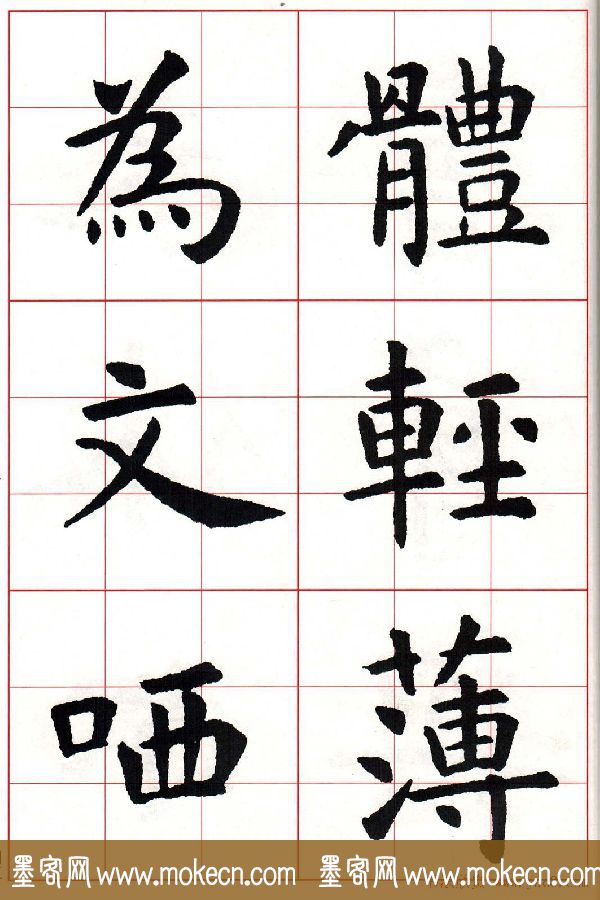 體輕薄
為文哂
墨客网 www.mokecn.com 墨客网 www.mokecn.com